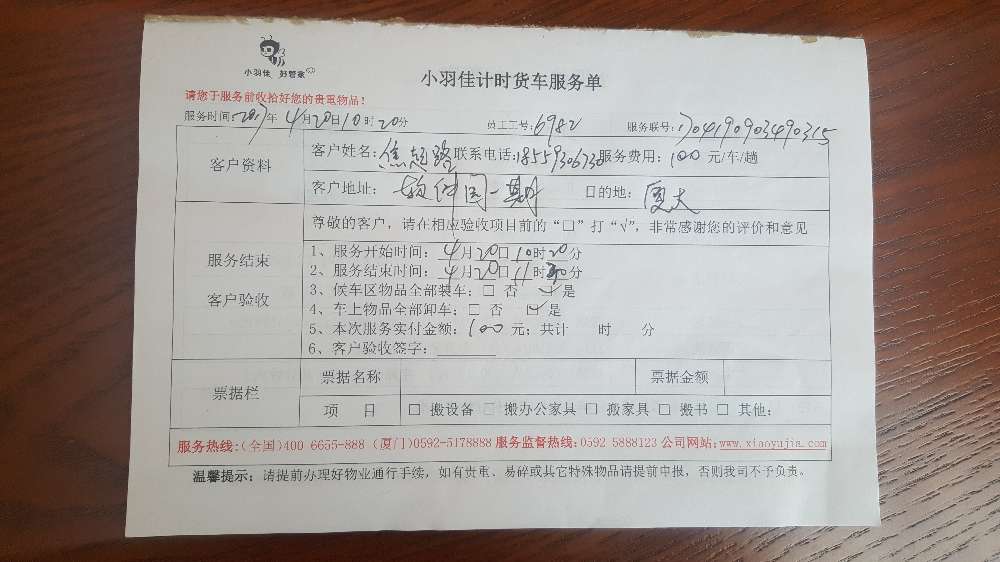 小羽佳 好管家
小羽佳计时货车服务单
请您于服务前收拾好您的贵重物品！
服务时间：2017年 4月20日10时20分 员工工号：6982 服务联号：170419090349 0315
客户资料
客户姓名：焦超路 联系电话：18559306730 服务费用：100 元/车/趟
客户地址：软件园一期 目的地：厦大
尊敬的客户，请在相应验收项目前的“□”打“√”，非常感谢您的评价和意见
服务结束
客户验收
1、服务开始时间：4月20日10时20分
2、服务结束时间：4月20日11时30分
3、候车区物品全部装车：□ 否 ☑ 是
4、车上物品全部卸车：□ 否 ☑ 是
5、本次服务实付金额：100 元；共计 时 分
6、客户验收签字：
票据栏
票据名称 票据金额
项 目 □ 搬设备 □ 搬办公家具 □ 搬家具 □ 搬书 □ 其他：
服务热线：(全国)400 6655-888 (厦门)0592-5178888 服务监督热线：0592 5888123 公司网站：www.xiaoyujia.com
温馨提示：请提前办理好物业通行手续，如有贵重、易碎或其它特殊物品请提前申报，否则我司不予负责。